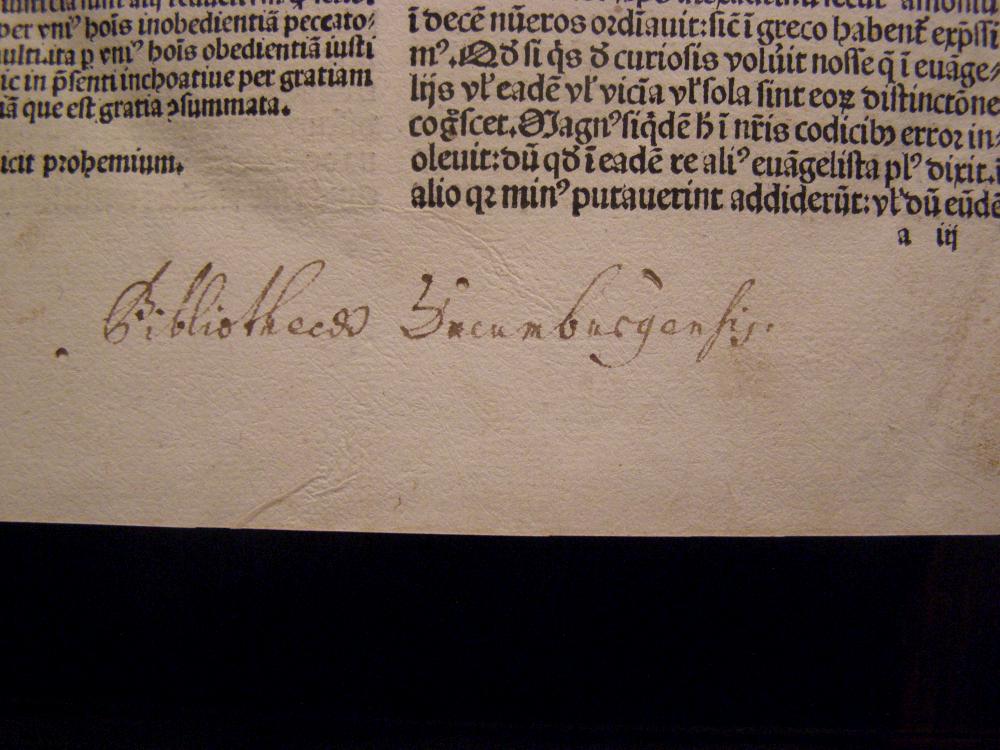 per vniꝰ hoīs inobedientiā peccato⸗
ulti.ita ꝑ vniꝰ hoīs obedientiā iusti
ic in p̄senti inchoatiue per gratiam
iā que est gratia ↄsummata.
icit prohemium.
ī decē nūeros ordīauit: sic̄ ī greco habent᷑ exp̄ssi
mꝰ. Qd̓ si q̇s d̓ curiosis volūit nosse q̄ ī euāge⸗
lijs vl̓ eadē vl̓ vicīa vl̓ sola sint eoꝝ distinctōne
cog̊scet. Magnꝰ siq̇dē h̓ ī nr̄is codicibꝫ error in⸗
oleuit: dū qd̓ ī eadē re aliꝰ euāgelista plꝰ dixit. ī
alio qꝛ minꝰ putauerint addiderūt: vl̓ dū eūdē
a iij
Bibliothecæ